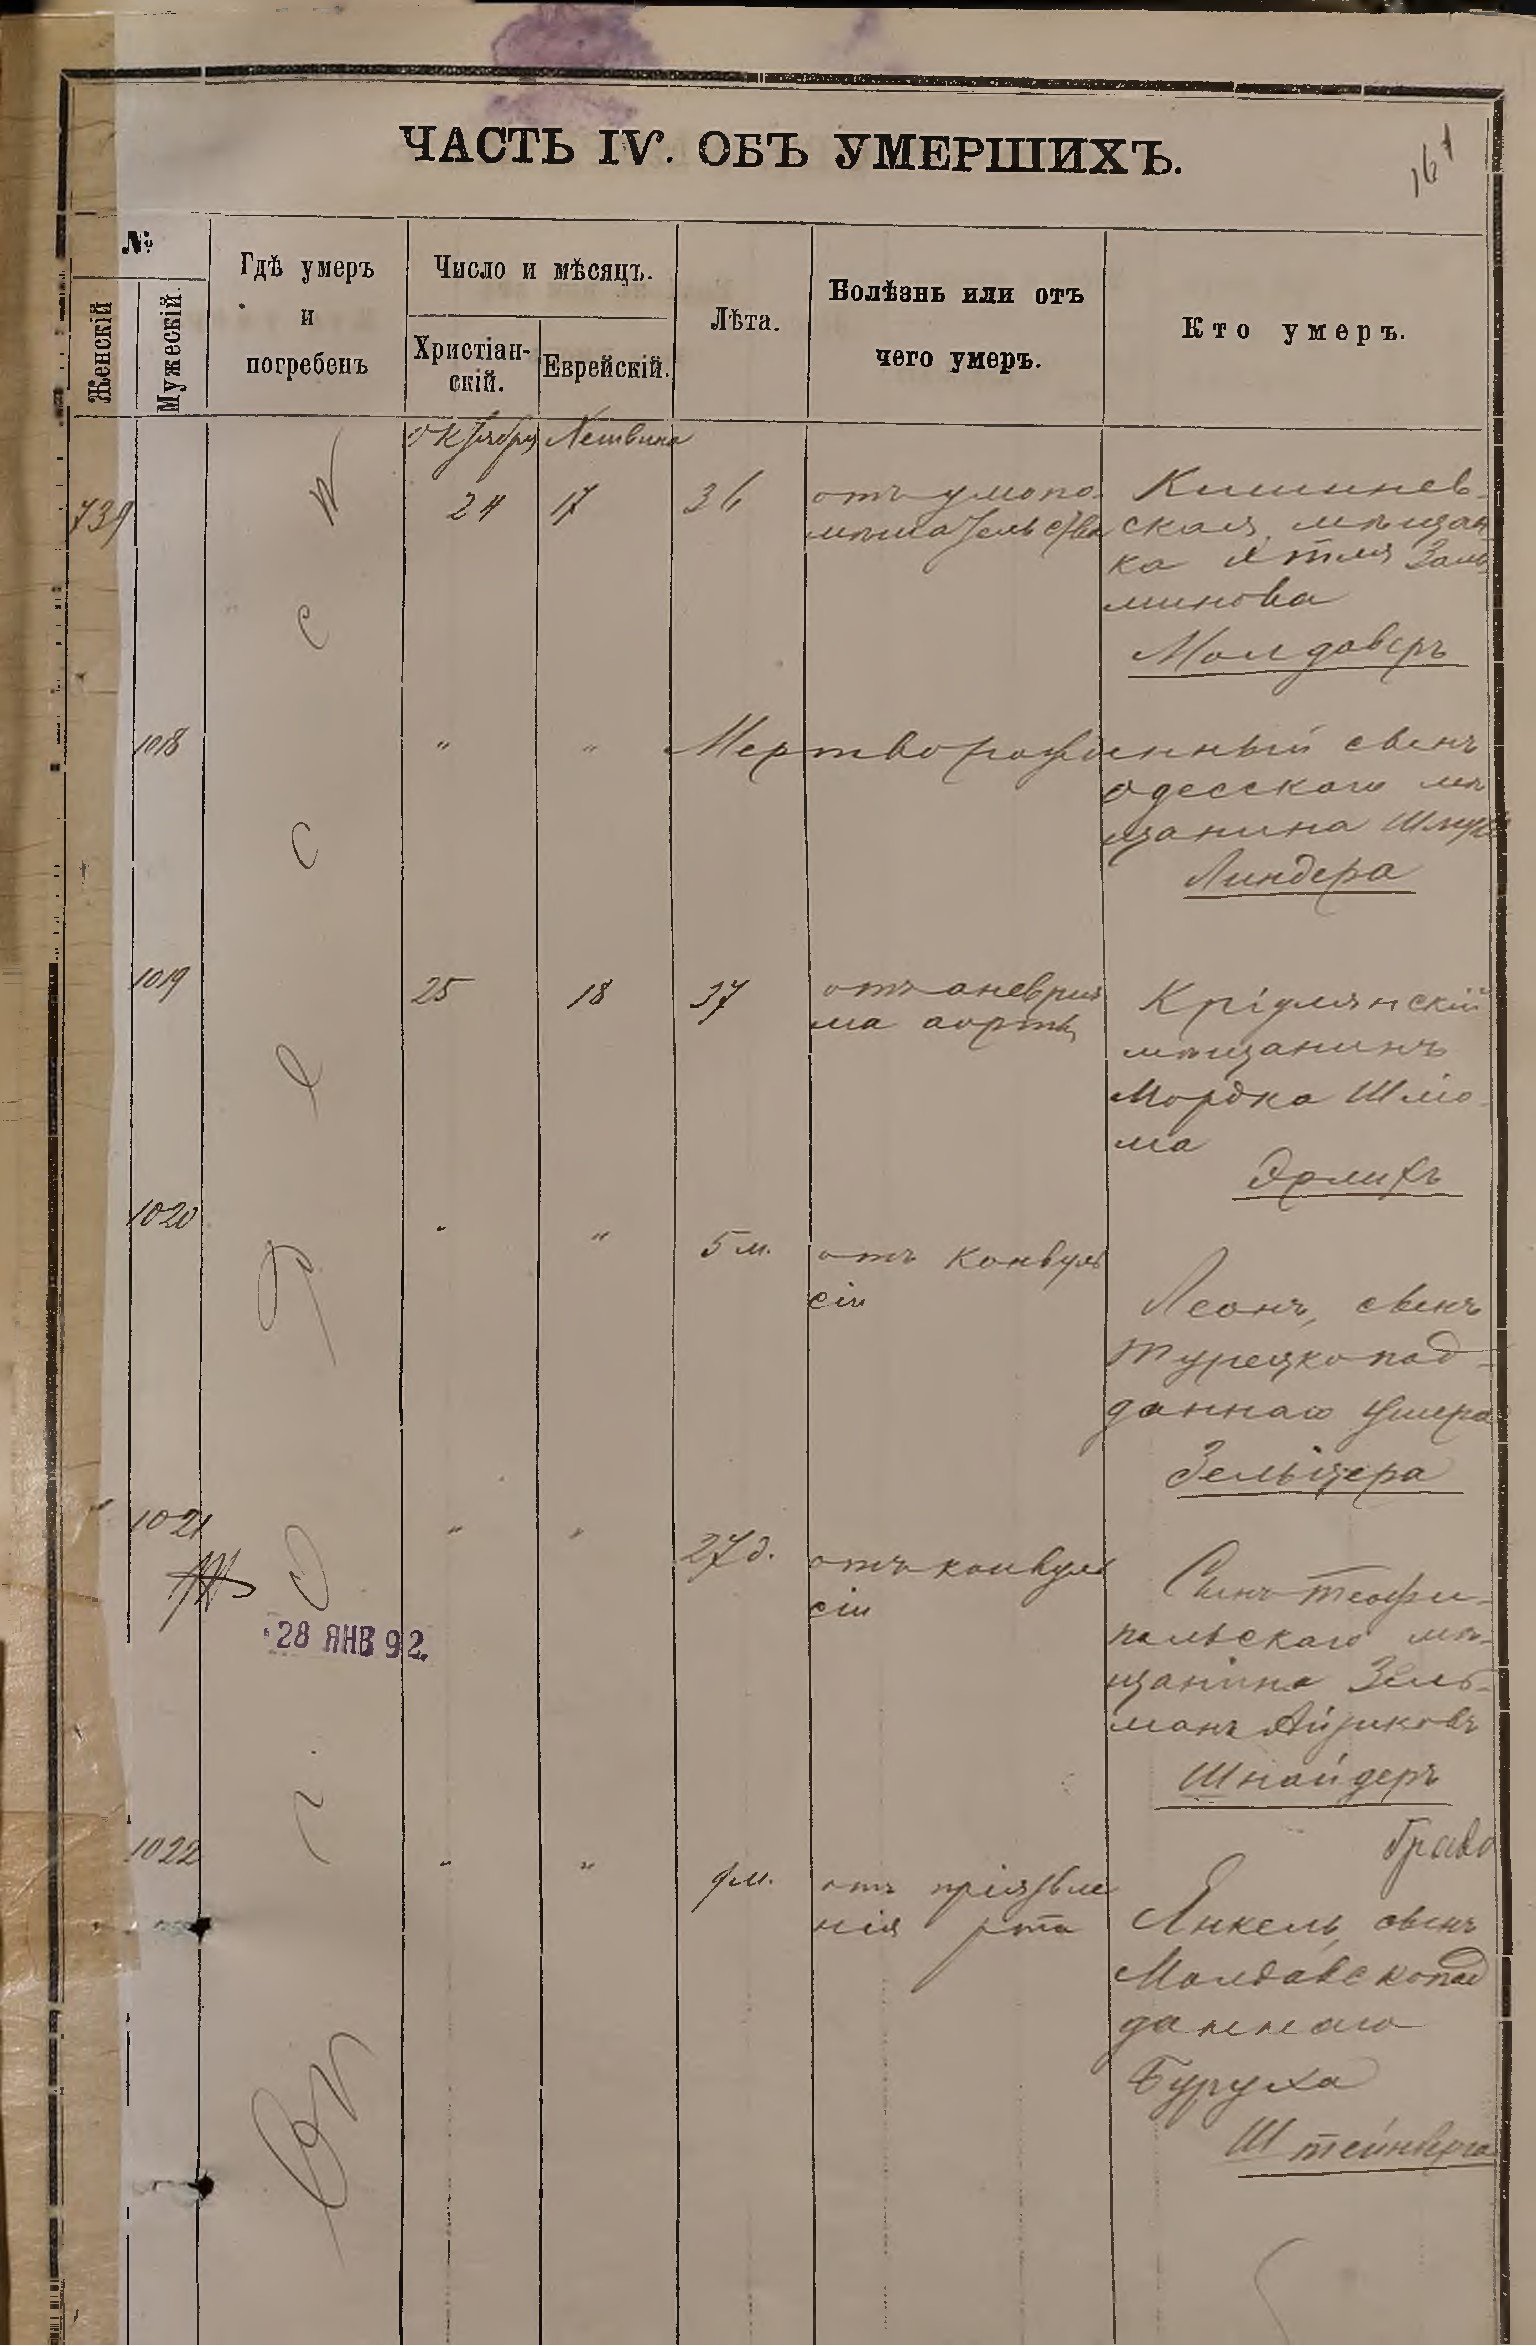 ЧАСТЬ IV. ОБЪ УМЕРШИХЪ.
161
№
Женскій
Мужескій.
Гдѣ умеръ
и
погребенъ
Число и мѣсяцъ.
Христіан-
скій.
Еврейскій.
Лѣта.
Болѣзнь или отъ
чего умеръ.
Кто умеръ.
Октября Хешвина
739
24 17 36
отъ умопо-
мѣшательства
Кишинев-
ская мѣщан-
ка Этля Заль
минова
Молдаверъ
1018 " " Мертворожденный сынъ
одесскаго мѣ
щанина Шмуля
Линдера
1019 25 18 37
отъ аневриз
ма аорты
Кріулянскій
мѣщанинъ
Мордко Шлio-
ма
Эрлихъ
1020 " " 5 м.
отъ конвуль
сіи
Леонъ, сынъ
турецкопод-
даннаго Ушера
Зельцера
1021 " " 27 д.
отъ конвуль
сіи
28 ЯНВ 92.
Сынъ Теофи-
польскаго мѣ-
щанина Зель-
манъ Айзиковъ
Шнайдеръ
1022 " "
отъ
нія рта
Янкель, сынъ
Молдавскопод
даннаго
Буруха
Штейнберга